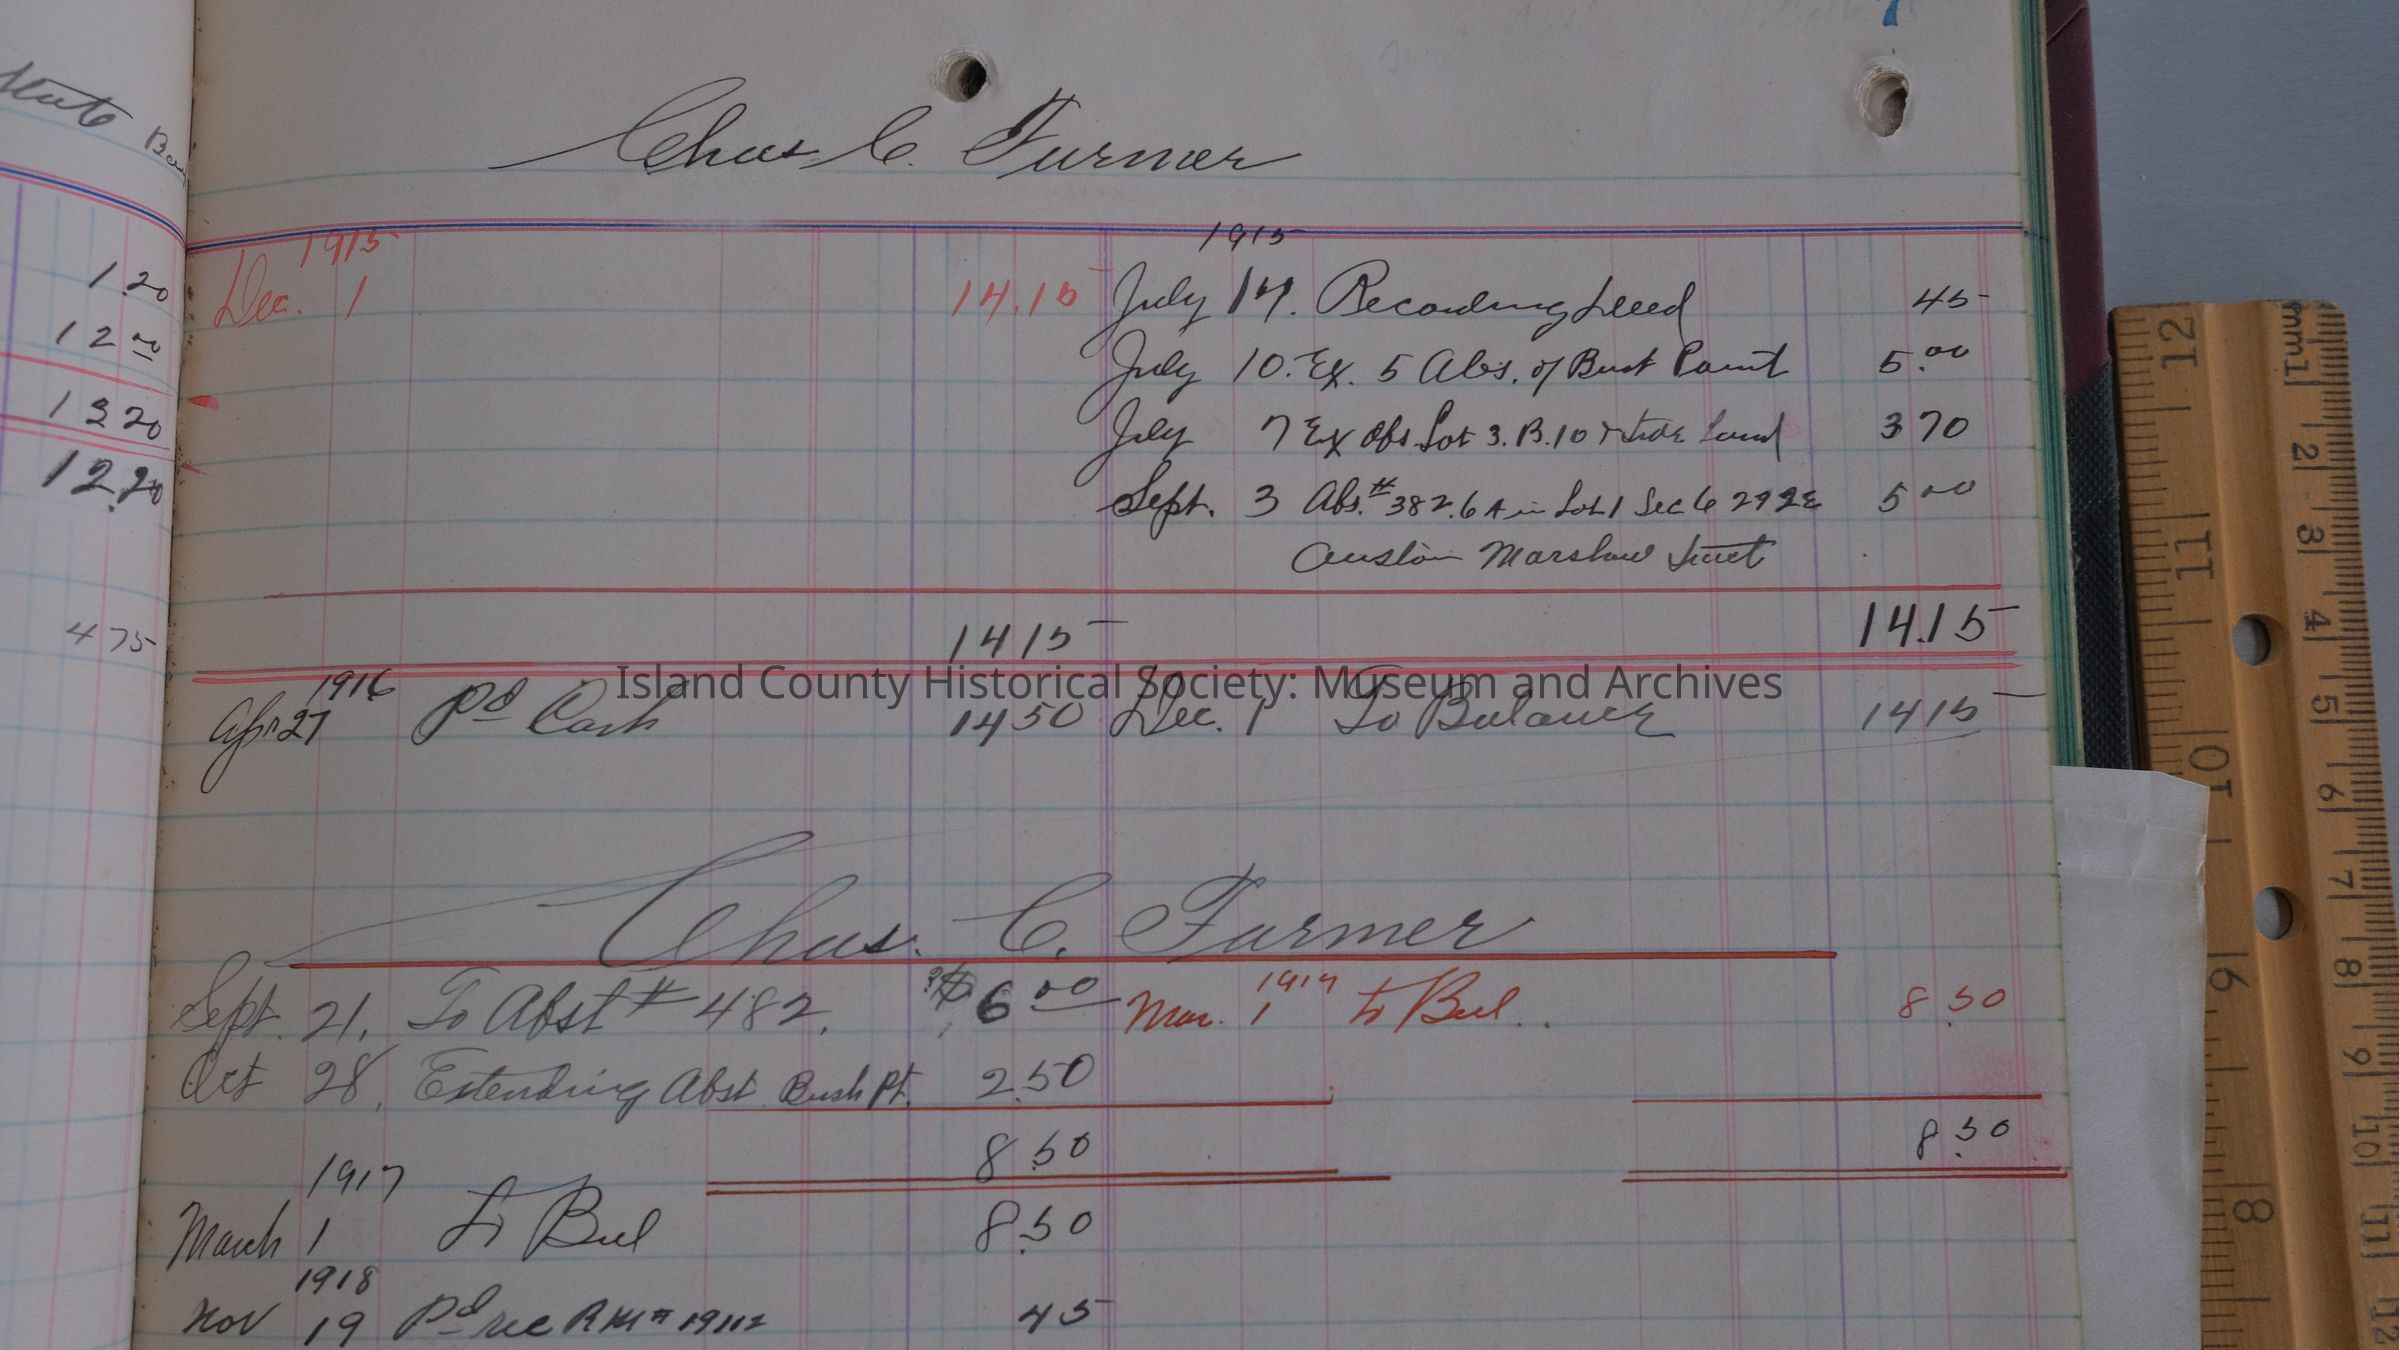 1 20
12 00
13 20
12.20
4 75
7
Chas C. Furmer
1915
Dec. 1 14.15
1915
July 14. Recording Deed 45
July 10. Ex. 5 Abs. of Bush Point 5.00
July 7 Ex Abs Lot 3. B. 10 & Tide Land 3 70
Sept. 3 Abs. # 382. 6 A in Lot 1 Sec 6 29 2 E 5 00
Austin Marshall Tract
14 15 14.15
1916
Apr 27 Pd Cash 14 50 Dec. 1 To Balance 14 15
Island County Historical Society: Museum and Archives
Chas. C. Furmer
Sept. 21. To Abst # 482. $ 6 00
1917
Mar. 1 to Bal.. 8.50
Oct 28, Extending Abst Bush Pt. 2.50
8.50 8.50
1917
March 1 To Bal 8.50
1918
Nov 19 Pd rec 45
12
11
10
9
8
mm1 2 3 4 5 6 7 8 9 10 11 12